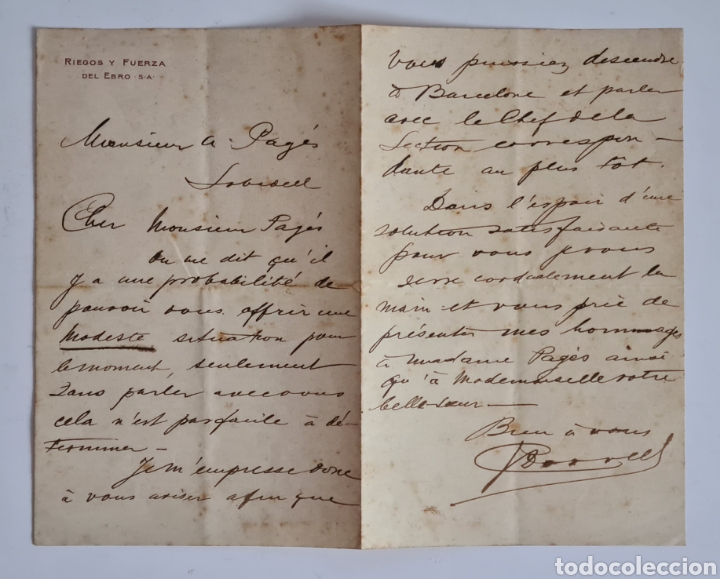 RIEGOS Y FUERZA
DEL EBRO S.A.
Monsieur A. Pagés
Cher Monsieur Pagés
on me dit qu'il
y a une probabilité de
pouvoir vous offrir une
modeste situation pour
le moment, seulement
sans parler avec vous
cela n'est pas facile à dé-
terminer -
Je m'empresse donc
à vous aviser afin que
vous puissiez descendre
à Barcelone et parler
avec le Chef de la
Section correspon-
dante au plus tôt.
Dans l'espoir d'une
solution satisfaisante
pour vous je vous
serre cordialement la
main et vous prie de
présenter mes hommages
à madame Pagés ainsi
qu'à Mademoiselle votre
belle-soeur -
Bien à vous
todocoleccion.net